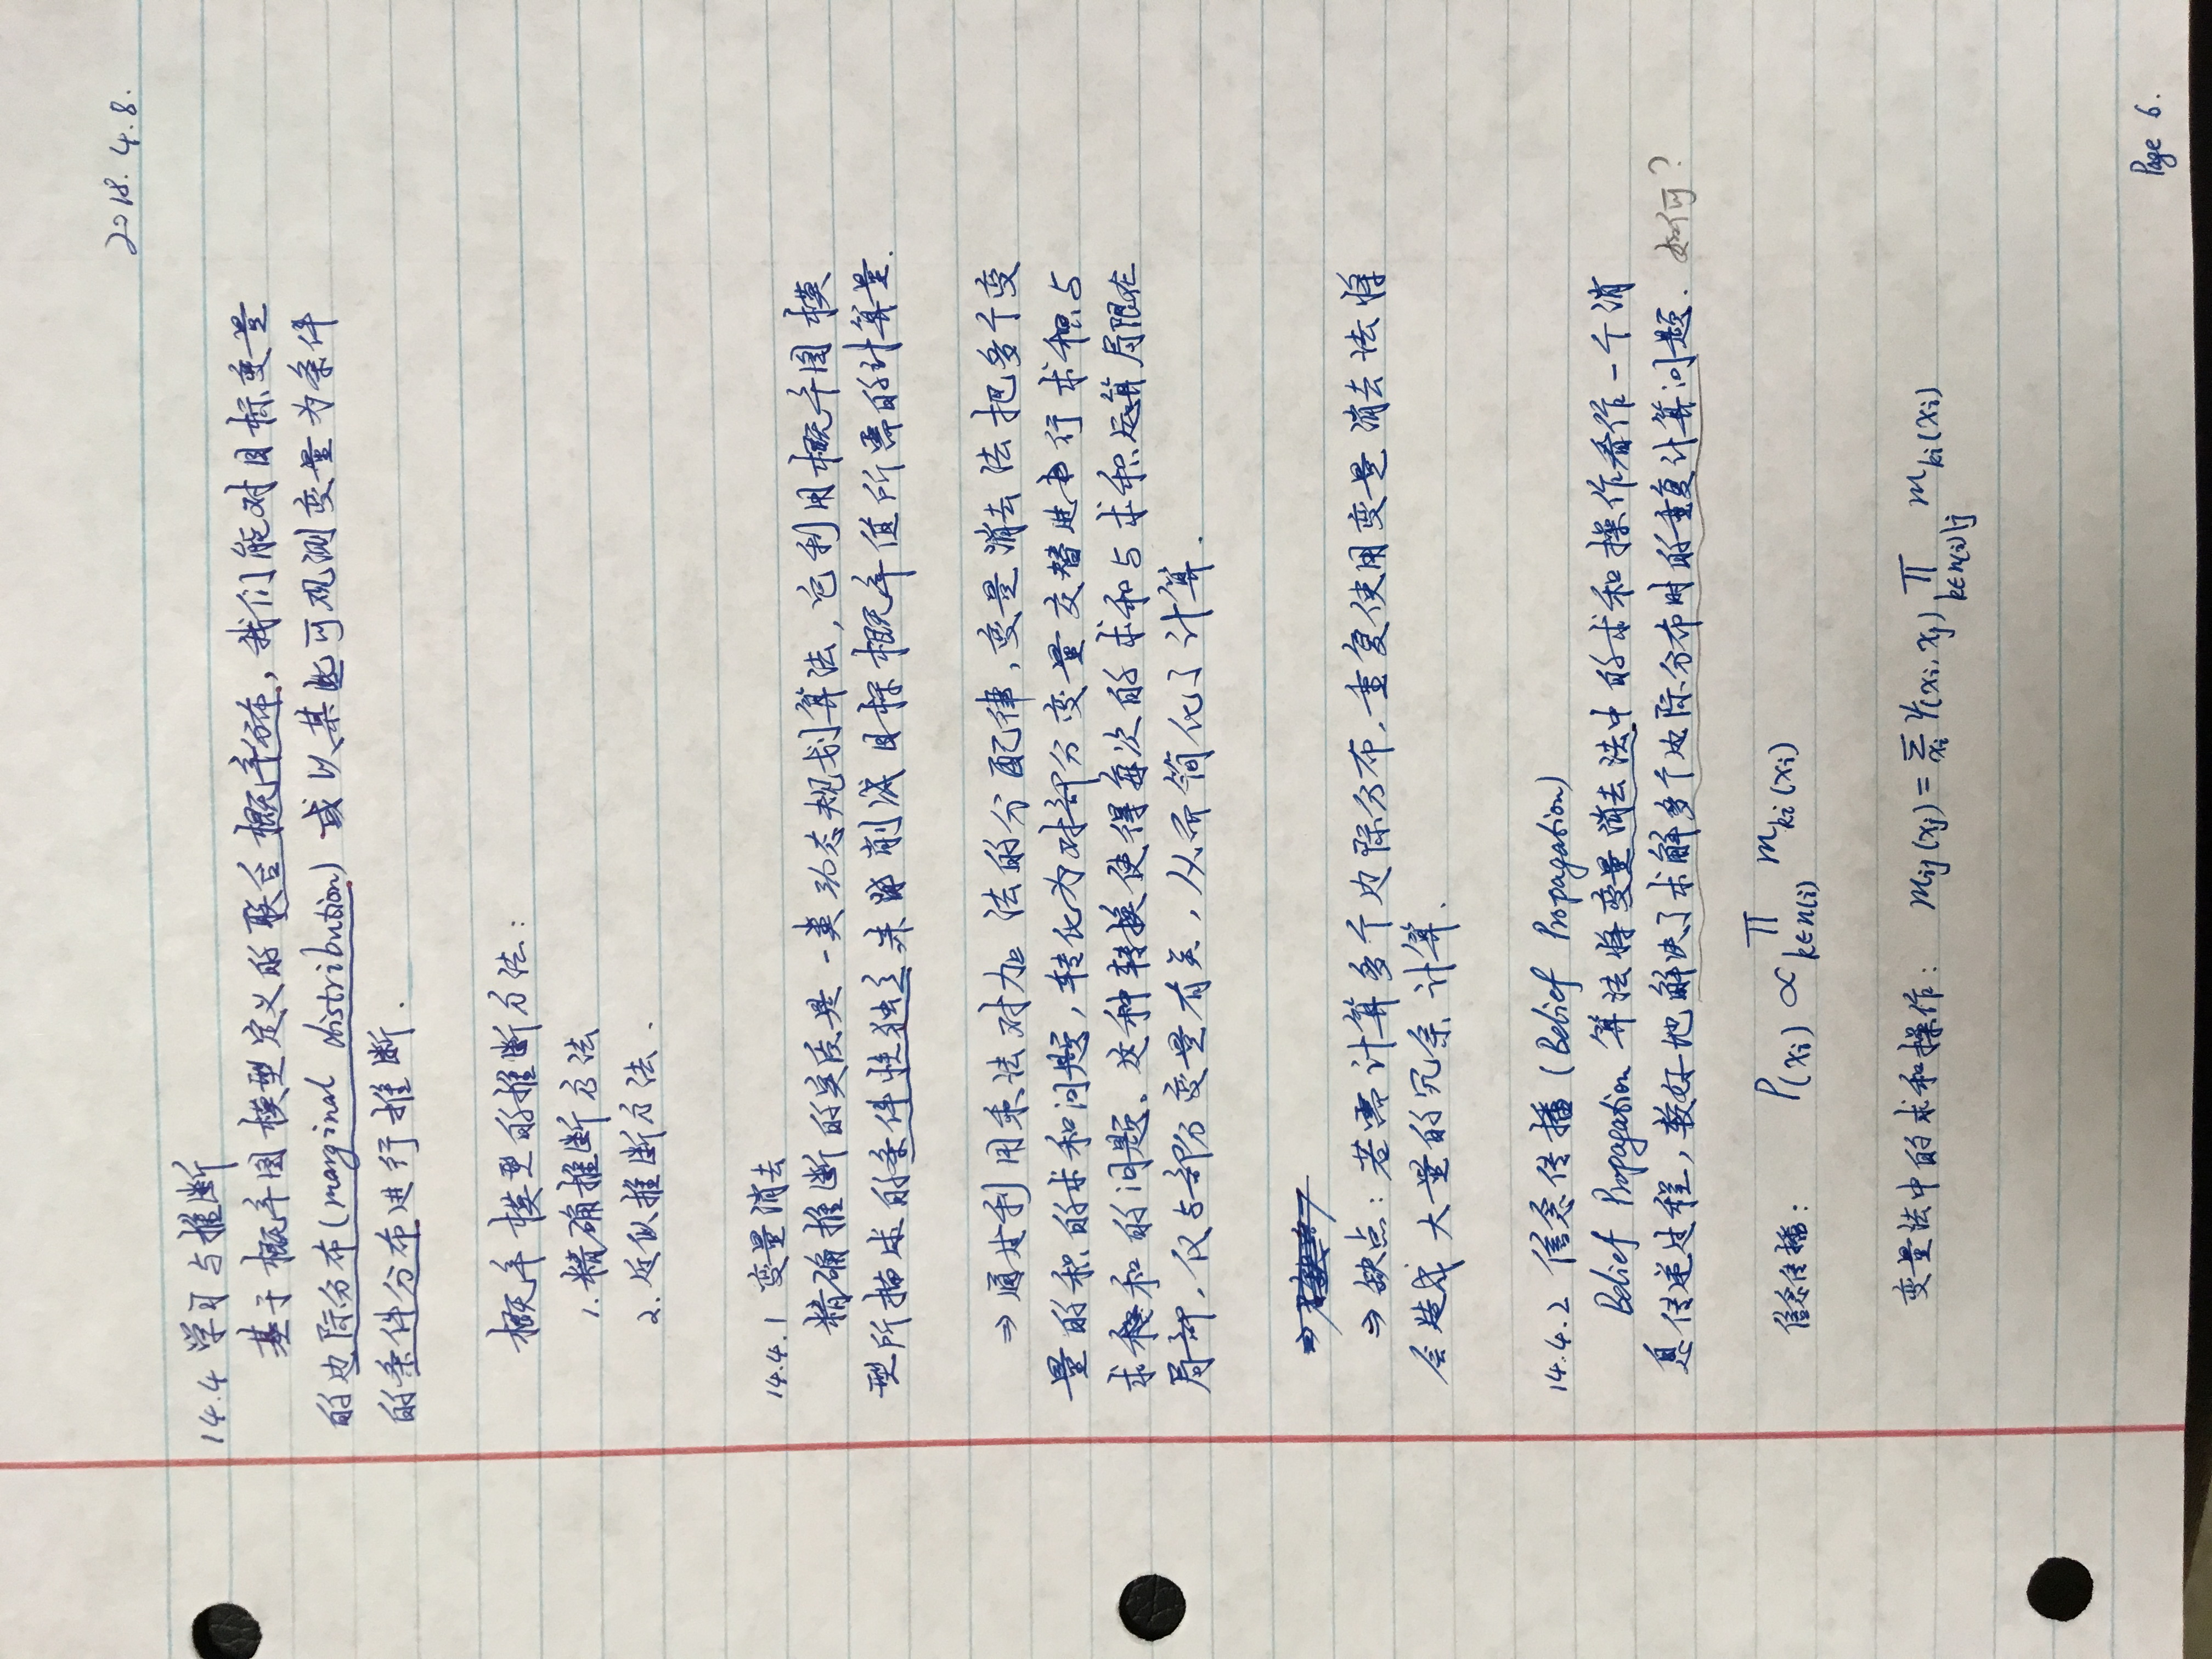 2018.4.8.
14.4 学习与推断
基于概率图模型定义的联合概率分布，我们能对目标变量
的边际分布(marginal distribution)或以某些可观测变量为条件
的条件分布进行推断.
概率模型的推断方法：
1.精确推断方法
2.近似推断方法.
14.4.1 变量消去
精确推断的实质是一类动态规划算法，它利用概率图模
型所描述的条件性独立来削减目标概率值所需的计算量.
⇒ 通过利用乘法对加法的分配律，变量消去法把多个变
量的积的求和问题，转化为对部分变量交替进行求积与
求和的问题。这种转换使得每次的求和与求积运算局限在
局部，仅与部分变量有关，从而简化了计算.
⇒ 缺点：若需计算多个边际分布，重复使用变量消去法将
会造成大量的冗余计算.
14.4.2 信念传播(Belief Propagation)
Belief Propagation 算法将变量消去法中的求和操作看作一个消
息传递过程，较好地解决了求解多个边际分布时的重复计算问题. 如何？
信念传播： P(xi) ∝ ∏ k∈n(i) mki(xi)
变量法中的求和操作： mij(xj) = Σxi ψ(xi, xj) ∏ k∈n(i)\j mki(xi)
Page 6.